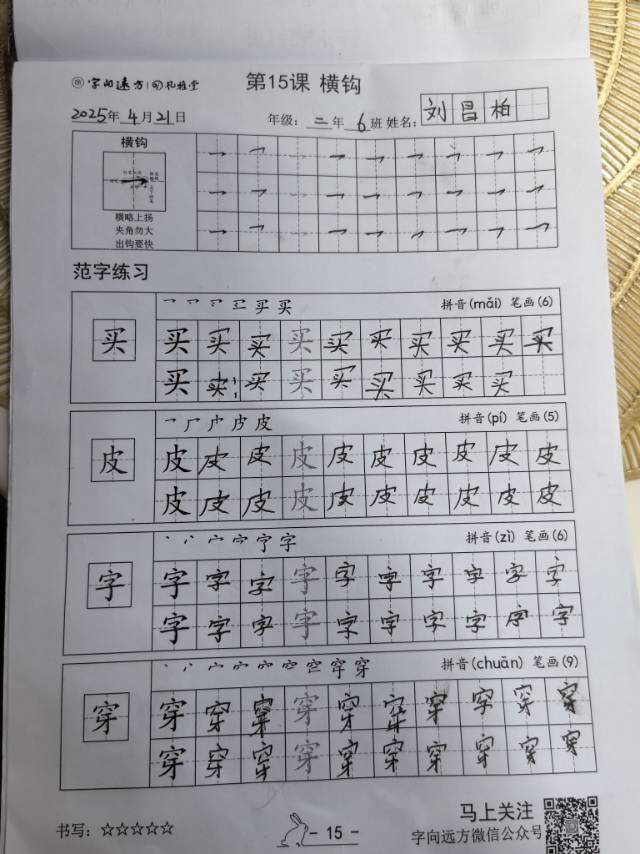 字向远方 礼雅堂 第15课 横钩
2025年 4月21日 年级：二年 6班 姓名：刘昌柏
横钩
横略上扬
夹角勿大
出钩要快
范字练习
买 拼音(mǎi) 笔画(6)
买 买 买 买 买 买 买 买 买 买
买 卖 买 买 买 买 买 买 买
皮 拼音(pí) 笔画(5)
皮 皮 皮 皮 皮 皮 皮 皮 皮 皮
皮 皮 皮 皮 皮 皮 皮 皮 皮 皮
字 拼音(zì) 笔画(6)
字 字 字 字 字 字 字 字 字 字
字 字 字 字 字 字 字 字 字 字
穿 拼音(chuān) 笔画(9)
穿 穿 穿 穿 穿 穿 穿 穿 穿 穿
穿 穿 穿 穿 穿 穿 穿 穿 穿 穿
书写：☆☆☆☆☆ - 15 - 马上关注
字向远方微信公众号